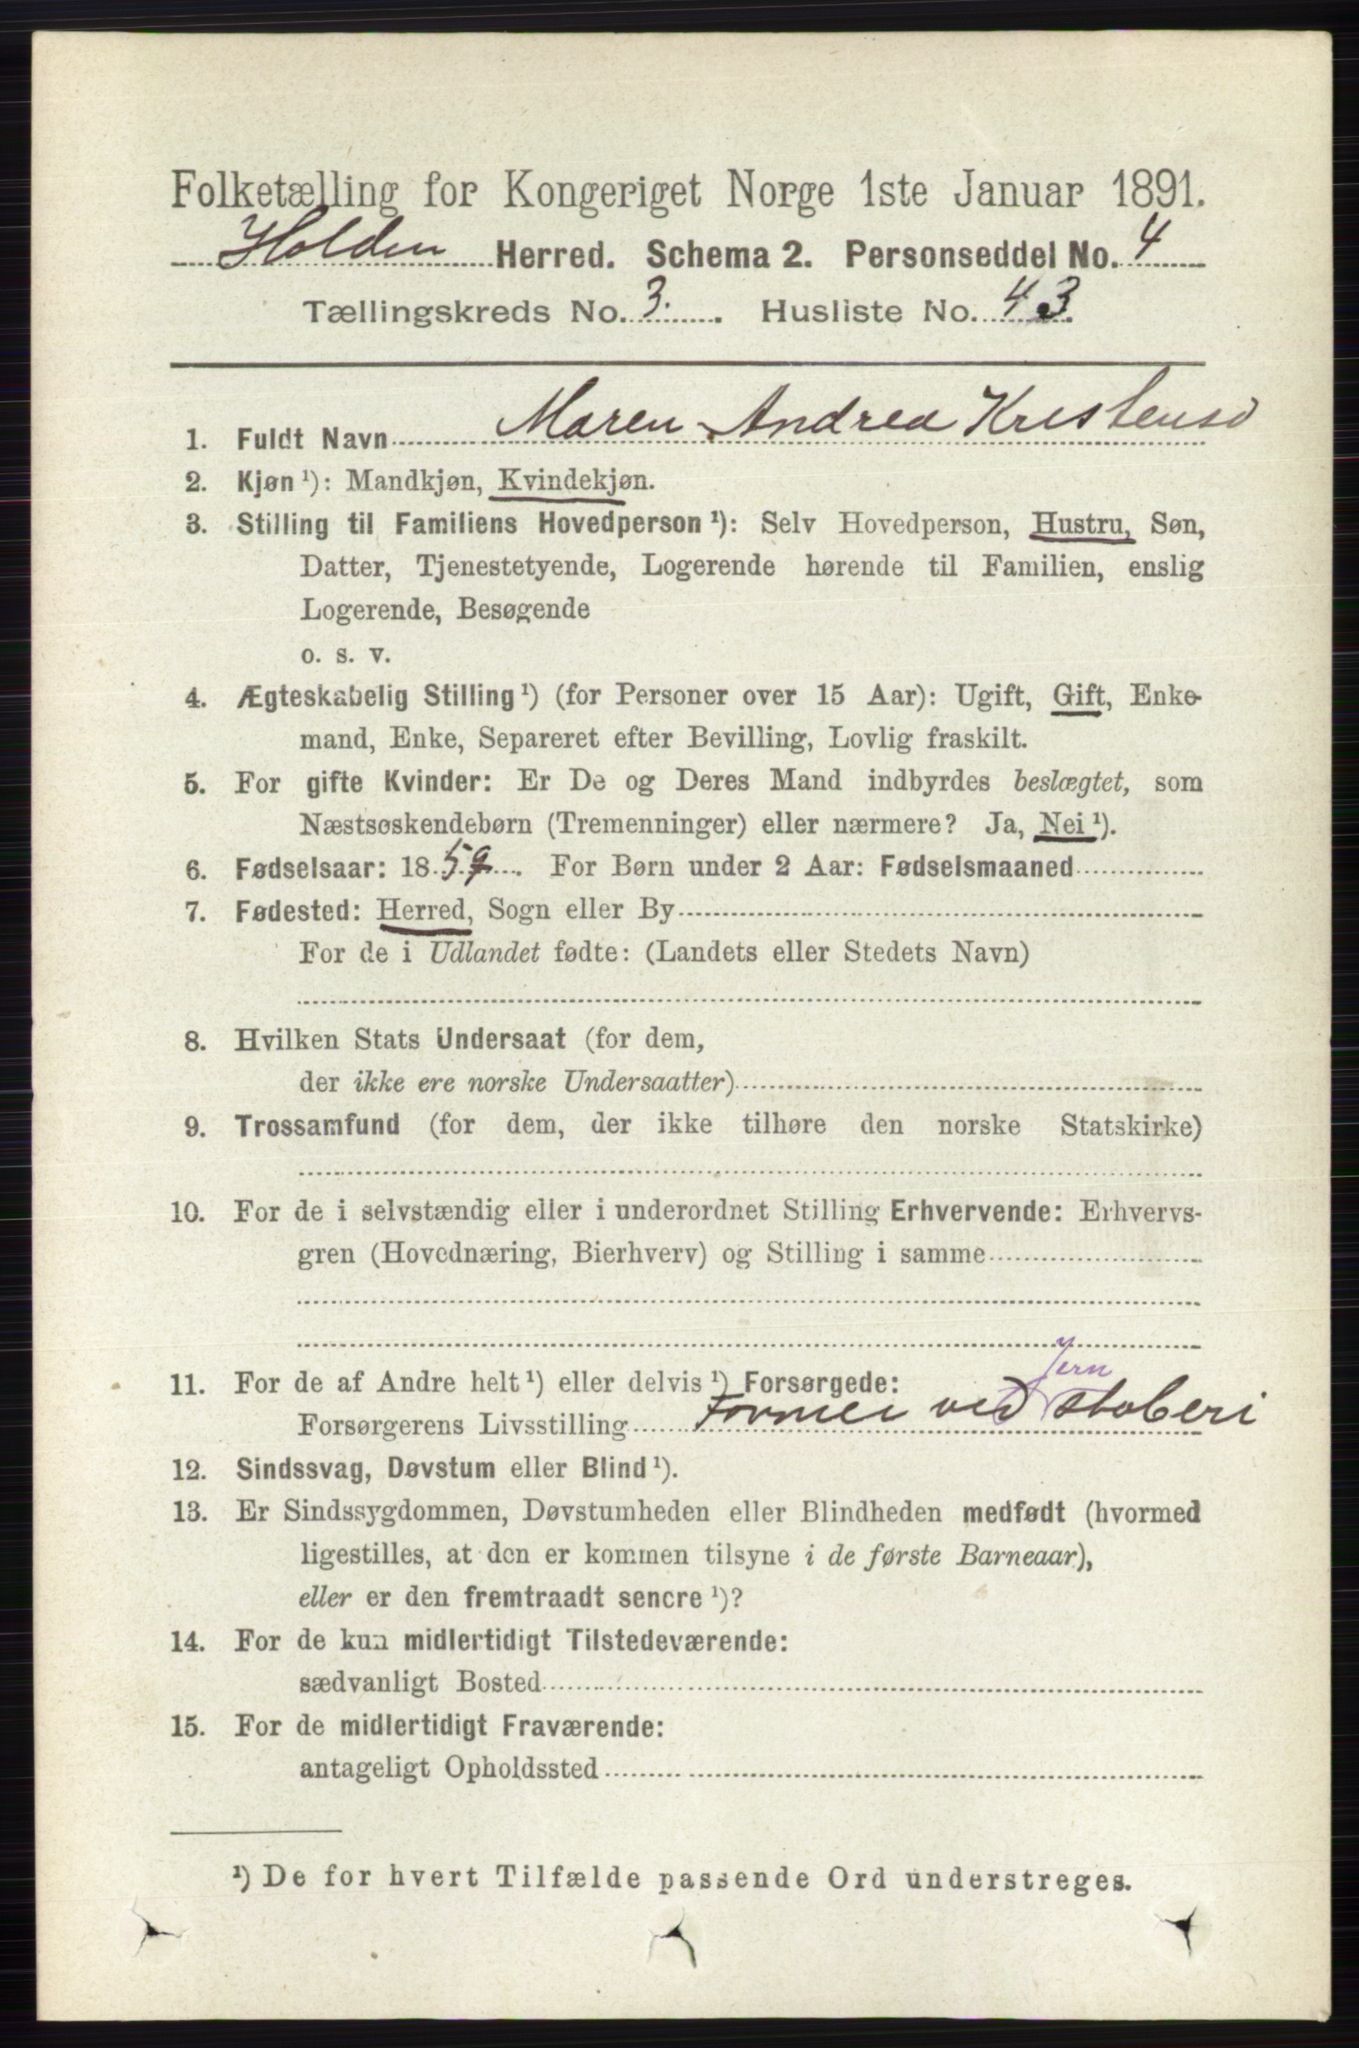 Folketælling for Kongeriget Norge 1ste Januar 1891.
Holden Herred. Schema 2. Personseddel No. 4
Tællingskreds No. 3. Husliste No. 43.
1. Fuldt Navn Maren Andrea Kristensd
2. Kjøn ¹): Mandkjøn, Kvindekjøn.
3. Stilling til Familiens Hovedperson ¹): Selv Hovedperson, Hustru, Søn,
Datter, Tjenestetyende, Logerende hørende til Familien, enslig
Logerende, Besøgende
o. s. v.
4. Ægteskabelig Stilling ¹) (for Personer over 15 Aar): Ugift, Gift, Enke-
mand, Enke, Separeret efter Bevilling, Lovlig fraskilt.
5. For gifte Kvinder: Er De og Deres Mand indbyrdes beslægtet, som
Næstsøskendebørn (Tremenninger) eller nærmere? Ja, Nei ¹).
6. Fødselsaar: 1859. For Børn under 2 Aar: Fødselsmaaned
7. Fødested: Herred, Sogn eller By
For de i Udlandet fødte: (Landets eller Stedets Navn)
8. Hvilken Stats Undersaat (for dem,
der ikke ere norske Undersaatter)
9. Trossamfund (for dem, der ikke tilhøre den norske Statskirke)
10. For de i selvstændig eller i underordnet Stilling Erhvervende: Erhvervs-
gren (Hovednæring, Bierhverv) og Stilling i samme
Jern
11. For de af Andre helt ¹) eller delvis ¹) Forsørgede:
Forsørgerens Livsstilling Former ved støberi
12. Sindssvag, Døvstum eller Blind ¹).
13. Er Sindssygdommen, Døvstumheden eller Blindheden medfødt (hvormed
ligestilles, at den er kommen tilsyne i de første Barneaar),
eller er den fremtraadt senere ¹)?
14. For de kun midlertidigt Tilstedeværende:
sædvanligt Bosted
15. For de midlertidigt Fraværende:
antageligt Opholdssted
¹) De for hvert Tilfælde passende Ord understreges.